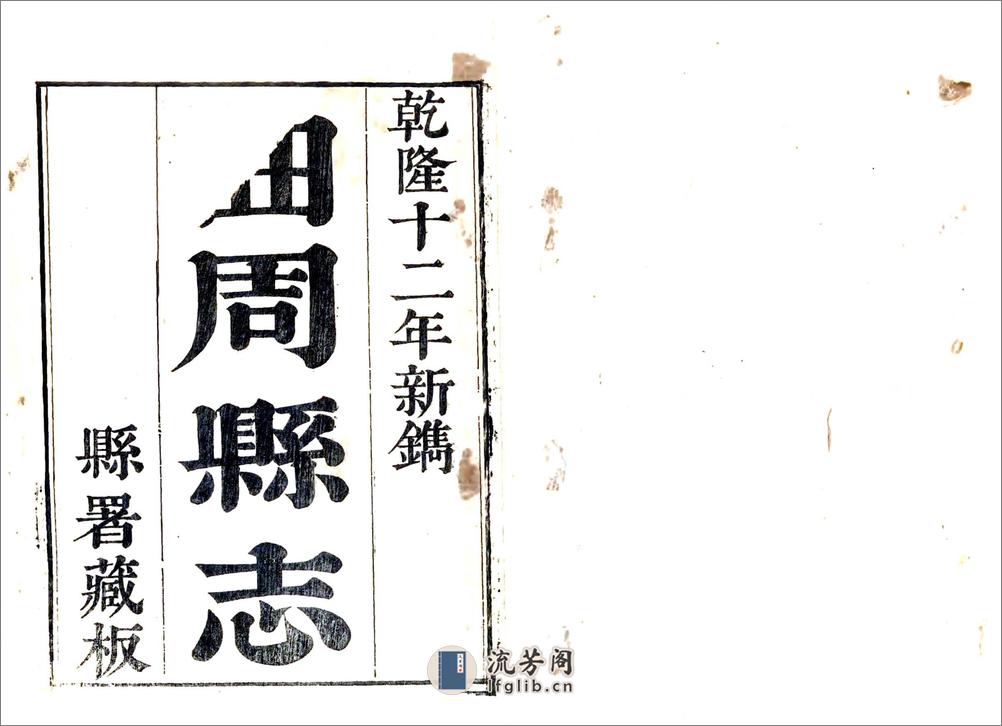 乾隆十二年新鐫
曲周縣志
縣署藏板
流芳阁
lfglib.cn